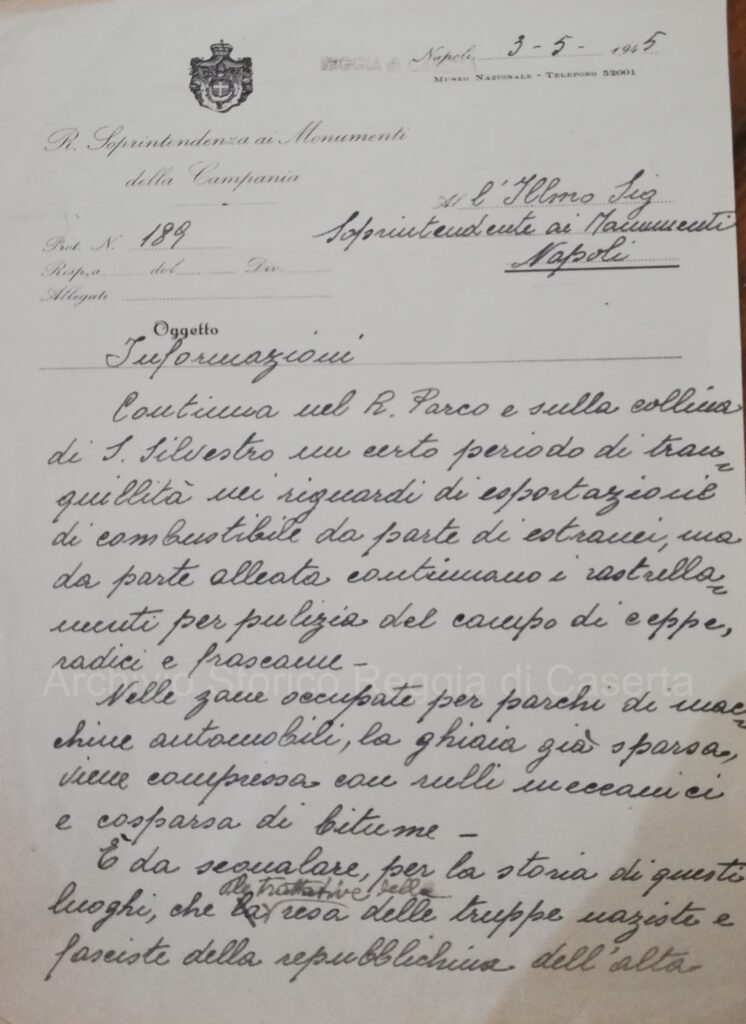 Napoli, 3-5-1945
REGGIA di CASERTA
MUSEO NAZIONALE - TELEFONO 52001
R. Soprintendenza ai Monumenti
della Campania
All l'Illmo Sig
Soprintendente ai Monumenti
Napoli
Prot. N. 189
Risp. a del Div.
Allegati
Oggetto
Informazioni
Continua nel R. Parco e sulla collina
di S. Silvestro un certo periodo di tran=
quillità nei riguardi di esportazione
di combustibile da parte di estranei, ma
da parte alleata continuano i rastrella=
menti per pulizia del campo di ceppe,
radici e frascame -
Archivio Storico Reggia di Caserta
Nelle zone occupate per parchi di mac=
chine automobili, la ghiaia già sparsa,
viene compressa con rulli meccanici
e cosparsa di bitume -
È da segnalare, per la storia di questi
le trattative della
luoghi, che la resa delle truppe naziste e
fasciste della repubblichina dell'alta